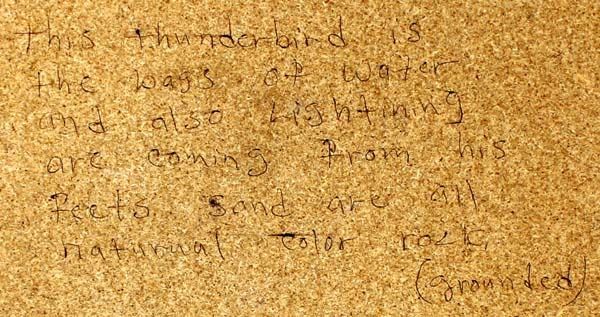 this thunderbird is
the ways of water.
and also Lightining
are coming from his
feets. Sand are all
naturual color rock.
(grounded)